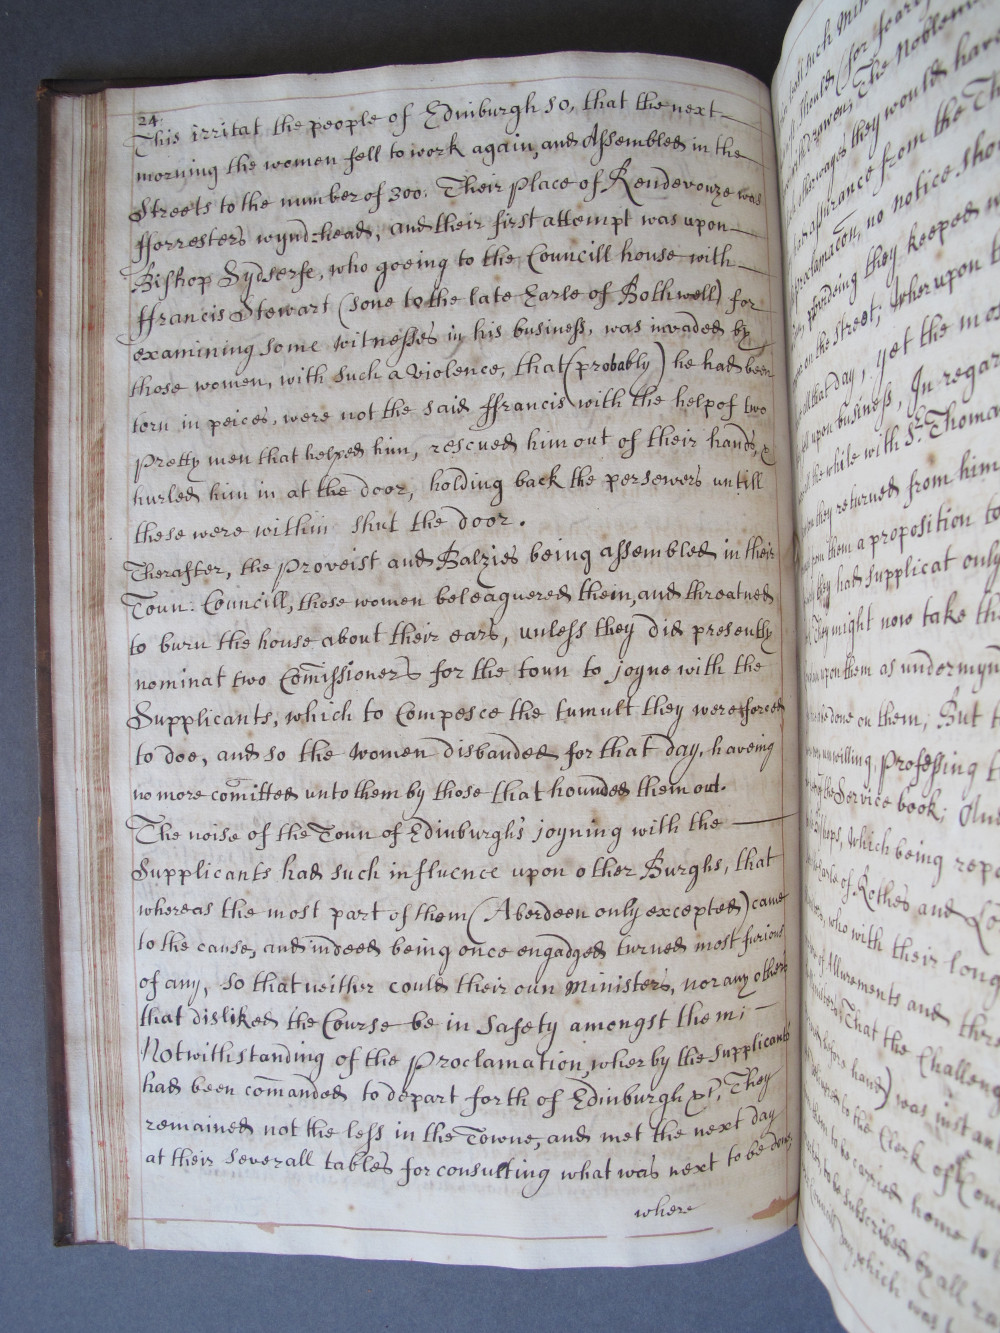 24:
This irritat the people of Edinburgh so, that the next
morning the women fell to work again, and Assembled in the
Streets to the number of 300. Their Place of Rendevouze was
fforresters wynd-head, and their first attempt was upon
Bishop Sydserfe, who goeing to the Councill house with
ffrancis Stewart (sone to the late Earle of Bothwell) for
examining some witnesses in his business, was invaded by
those women, with such a violence, that (probably) he had been
torn in peices, were not the said ffrancis with the help of two
pretty men that helped him, rescued him out of their hands, &
hurled him in at the door, holding back the persewers untill
these were within shut the door.
Therafter, the Proveist and Balzies being assembled in their
Toun: Councill, those women beleaguered them, and threatned
to burn the house about their ears, unless they did presently
nominat two Comissioners for the toun to joyne with the
Supplicants, which to Compesce the tumult they were forced
to doe, and so the women disbanded for that day, haveing
no more comitted unto them by those that hounded them out.
The noise of the Toun of Edinburgh's joyning with the
Supplicants had such influence upon other Burghs, that
whereas the most part of them (Aberdeen only excepted) came
to the cause, and indeed being once engadged turned most furious
of any, so that neither could their oun Ministers, nor any others
that disliked the Course be in Safety amongst them;
Notwithstanding of the Proclamation wherby the Supplicants
had been comanded to depart forth of Edinburgh &c, They
remained not the less in the Towne, and met the next day
at their severall tables for consulting what was next to be done,
where
such
should (for
The Noblemen
they would have
assurance from the
proclamacon, no notice
provideing they keeped
on the Street; Wherupon
all that day, yet the most
upon business, In regard
the while with Sr. Thomas
they returned from him
them a proposition to
they had supplicat only
They might now take the
upon them as
done on them, But
unwilling, Professing
the Service book; And
which being
Earle of Rothes and
who with their long
of Allurements and
That the
before hand) was just
to the Clerk of
to be carried home to
to be Subscribed by all
which was